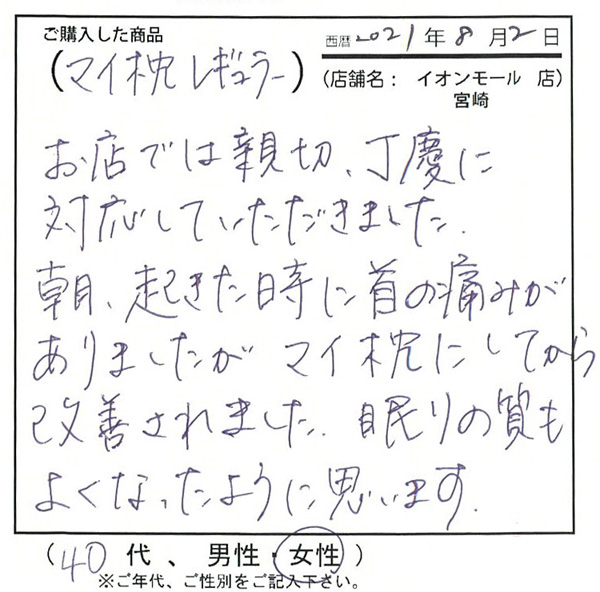 ご購入した商品
西暦 2021年 8月2日
(マイ枕 レギュラー)
(店舗名： イオンモール 店)
宮崎
お店では親切、丁慶に
対応していただきました。
朝、起きた時に首の痛みが
ありましたが マイ枕にしてから
改善されました。眠りの質も
よくなったように思います。
(40 代 、 男性・女性 )
※ご年代、ご性別をご記入下さい。